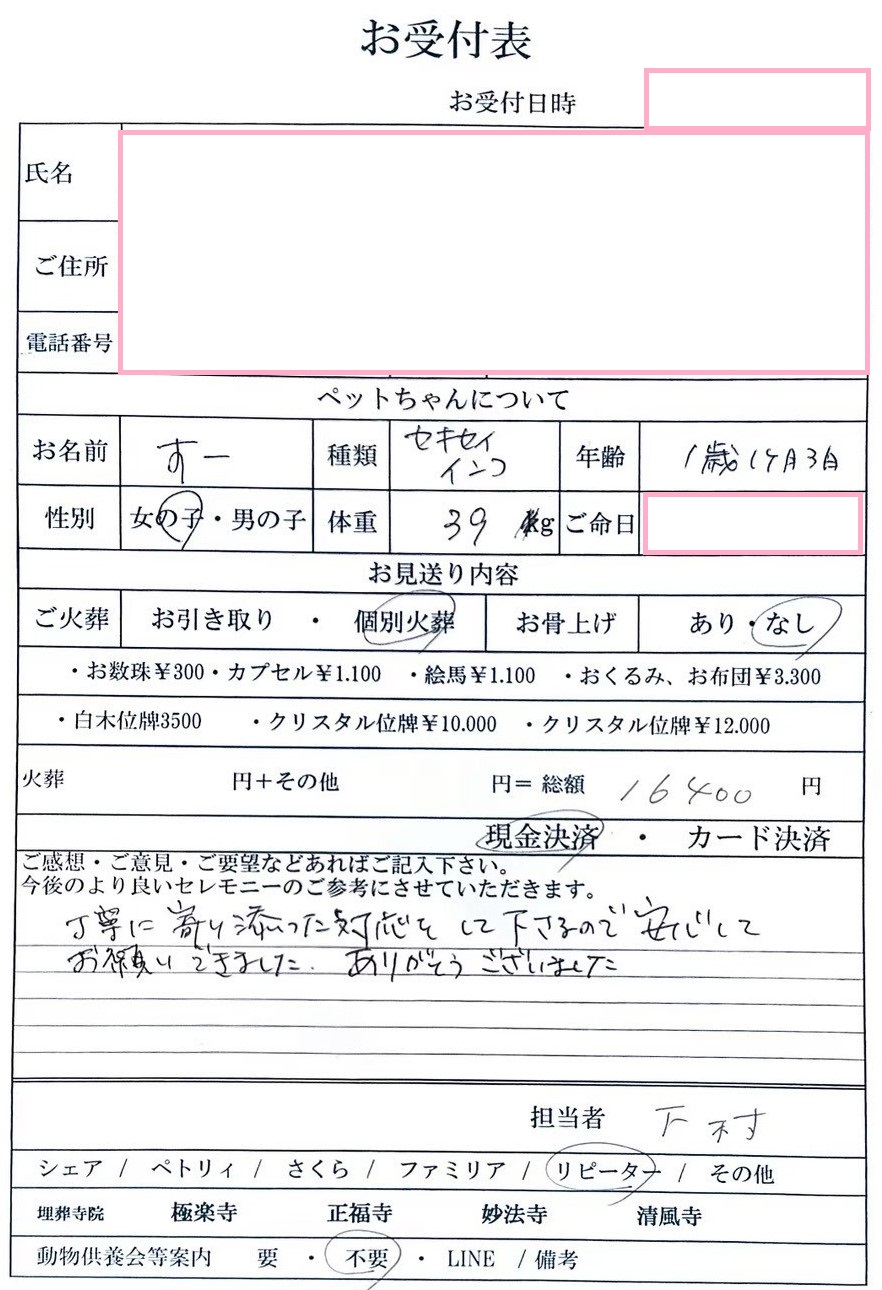 お受付表
お受付日時
氏名
ご住所
電話番号
ペットちゃんについて
お名前 すー 種類 セキセイインコ 年齢 1歳1ヶ月3日
性別 女の子・男の子 体重 39 kg ご命日
お見送り内容
ご火葬 お引き取り ・ 個別火葬 お骨上げ あり・なし
・お数珠¥300・カプセル¥1.100 ・絵馬¥1.100 ・おくるみ、お布団¥3.300
・白木位牌3500 ・クリスタル位牌¥10.000 ・クリスタル位牌¥12.000
火葬 円+その他 円= 総額 16400 円
現金決済 ・ カード決済
ご感想・ご意見・ご要望などあればご記入下さい。
今後のより良いセレモニーのご参考にさせていただきます。
丁寧に寄り添った対応をして下さるので安心して
お願いできました。ありがとうございました
担当者 下村
シェア / ペトリィ / さくら / ファミリア / リピーター / その他
埋葬寺院 極楽寺 正福寺 妙法寺 清風寺
動物供養会等案内 要 ・ 不要 ・ LINE / 備考